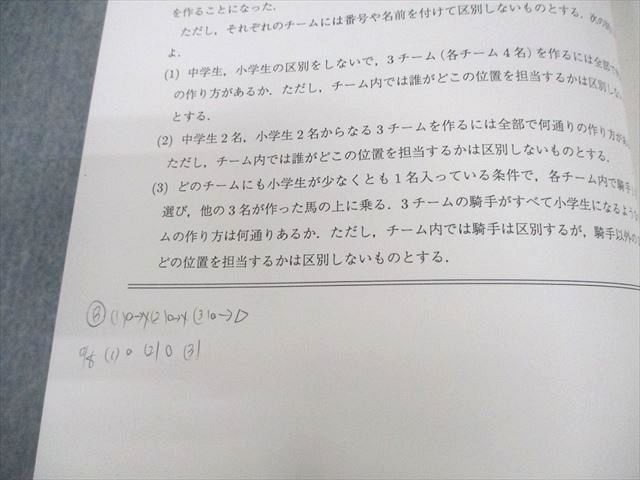 を作ることになった.
ただし，それぞれのチームには番号や名前を付けて区別しないものとする．次の
よ．
(1) 中学生，小学生の区別をしないで，3チーム（各チーム4名）を作るには全部で
の作り方があるか．ただし，チーム内では誰がどこの位置を担当するかは区別しな
とする．
(2) 中学生2名，小学生2名からなる3チームを作るには全部で何通りの作り方が
ただし，チーム内では誰がどこの位置を担当するかは区別しないものとする．
(3) どのチームにも小学生が少なくとも1名入っている条件で，各チーム内で騎手
選び，他の3名が作った馬の上に乗る．3チームの騎手がすべて小学生になるような
ムの作り方は何通りあるか．ただし，チーム内では騎手は区別するが，騎手以外の
どの位置を担当するかは区別しないものとする．
(1) (2) (3)
(1) 0 (2) 0 (3)